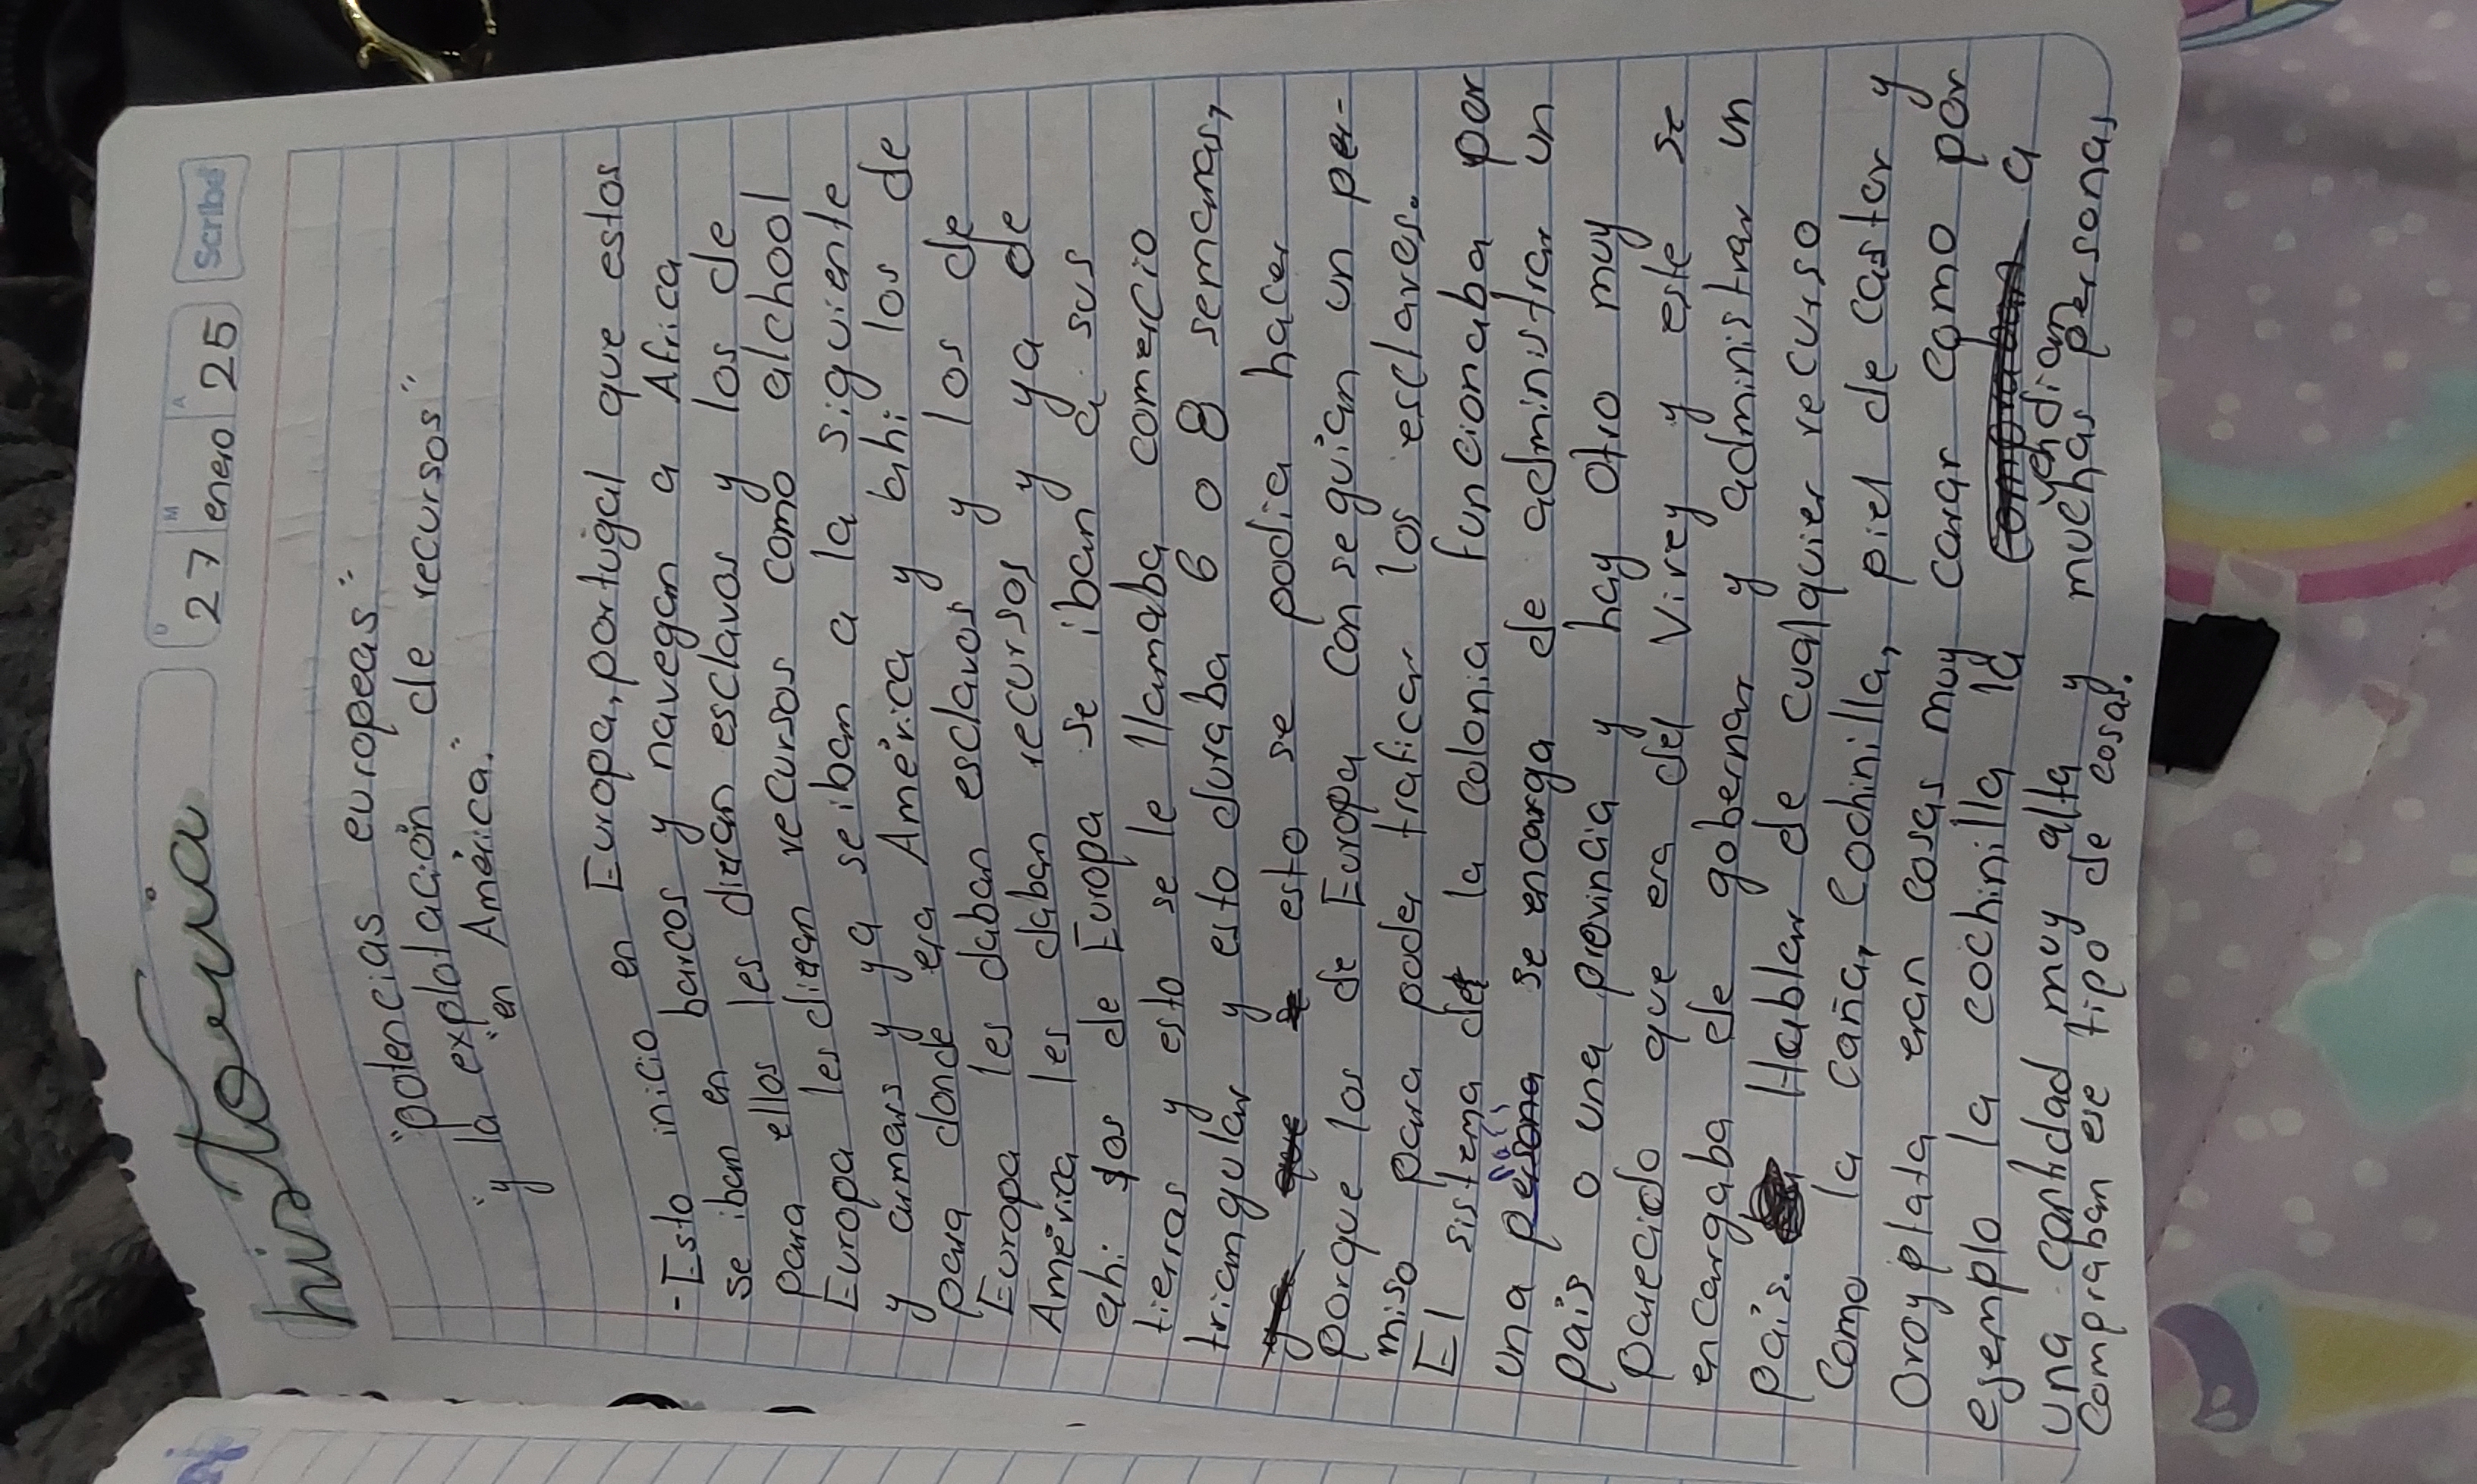 historia
D M A
27 enero 25
Scribe
"potencias europeas"
"y la explotación de recursos"
"en América."
- Esto inicio en Europa, portugal que estos
se iban en barcos y navegan a Africa
para ellos les dieran esclavos y los de
Europa les dieran recursos como alchool
y armas y ya se iban a la siguiente
para donde era América y ahi los de
Europa les daban esclavos y los de
América les daban recursos y ya de
ahi los de Europa se iban a sus
tierras y esto se le llamaba comercio
triangular y esto duraba 6 o 8 semanas,
y esto se podia hacer
porque los de Europa conseguian un per-
miso para poder traficar los esclaves.
El sistema de la colonia funcionaba por
una persona se encarga de administrar un
país o una provincia y hay otro muy
parecido que era del Virey y este se
encargaba de gobernar y administrar un
país. Hablar de cualquier recurso
como la caña, cochinilla, piel de castor y
Oro y plata eran cosas muy caras como por
esemplo la cochinilla la vendian a
una cantidad muy alta y muchas personas
compraban ese tipo de cosas.